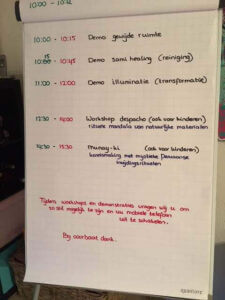 10:00 - 10:15 Demo gewijde ruimte
10:15 - 10:45 Demo sami healing (reiniging)
11:00 - 12:00 Demo illuminatie (transformatie)
12:30 - 14:00 Workshop despacho (ook voor kinderen)
rituele mandala van natuurlijke materialen
14:30 - 15:30 Munay-ki (ook voor kinderen)
kennismaking met mystieke Peruaanse
inwijdingsrituelen
Tijdens workshops en demonstraties vragen wij u om
zo stil mogelijk te zijn en uw mobiele telefoon
uit te schakelen.
Bij voorbaat dank.